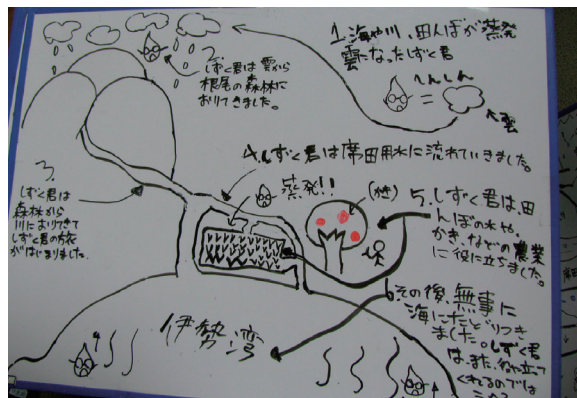 1.海や川、田んぼが蒸発
雲になったしずく君
へんしん
=
雲
2.
しずく君は雲から
根尾の森林に
おりてきました。
3.
しずく君は
森林から
川におりてきて
しずく君の旅
がはじまりました。
4.しずく君は席田用水に流れていきました。
蒸発!!
(柿)
5.しずく君は、田
んぼの水や、
かき、などの農業
に役に立ちました。
6その後、無事に
海にたどりつき
ました。しずく君
は、また、役に立って
くれるのでは
伊勢湾